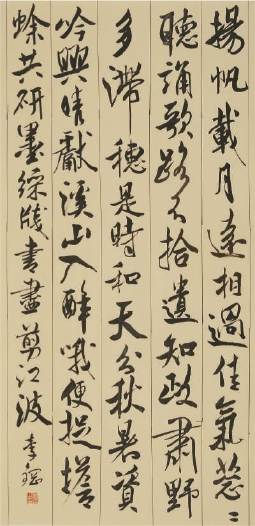 揚帆載月遠相過佳氣葱〻
聽誦歌路不拾遺知政肅野
多滯穗是時和天分秋暑資
吟興晴獻溪山入醉哦便捉蟾
蜍共研墨綵牋書盡剪江波 李鋼